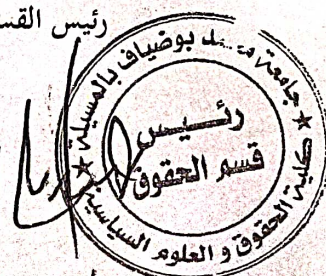 رئيس القس
جامعة محمد بوضياف بالمسيلة
كلية الحقوق و العلوم السياسية
رئـــيـــس
قسم الحقوق